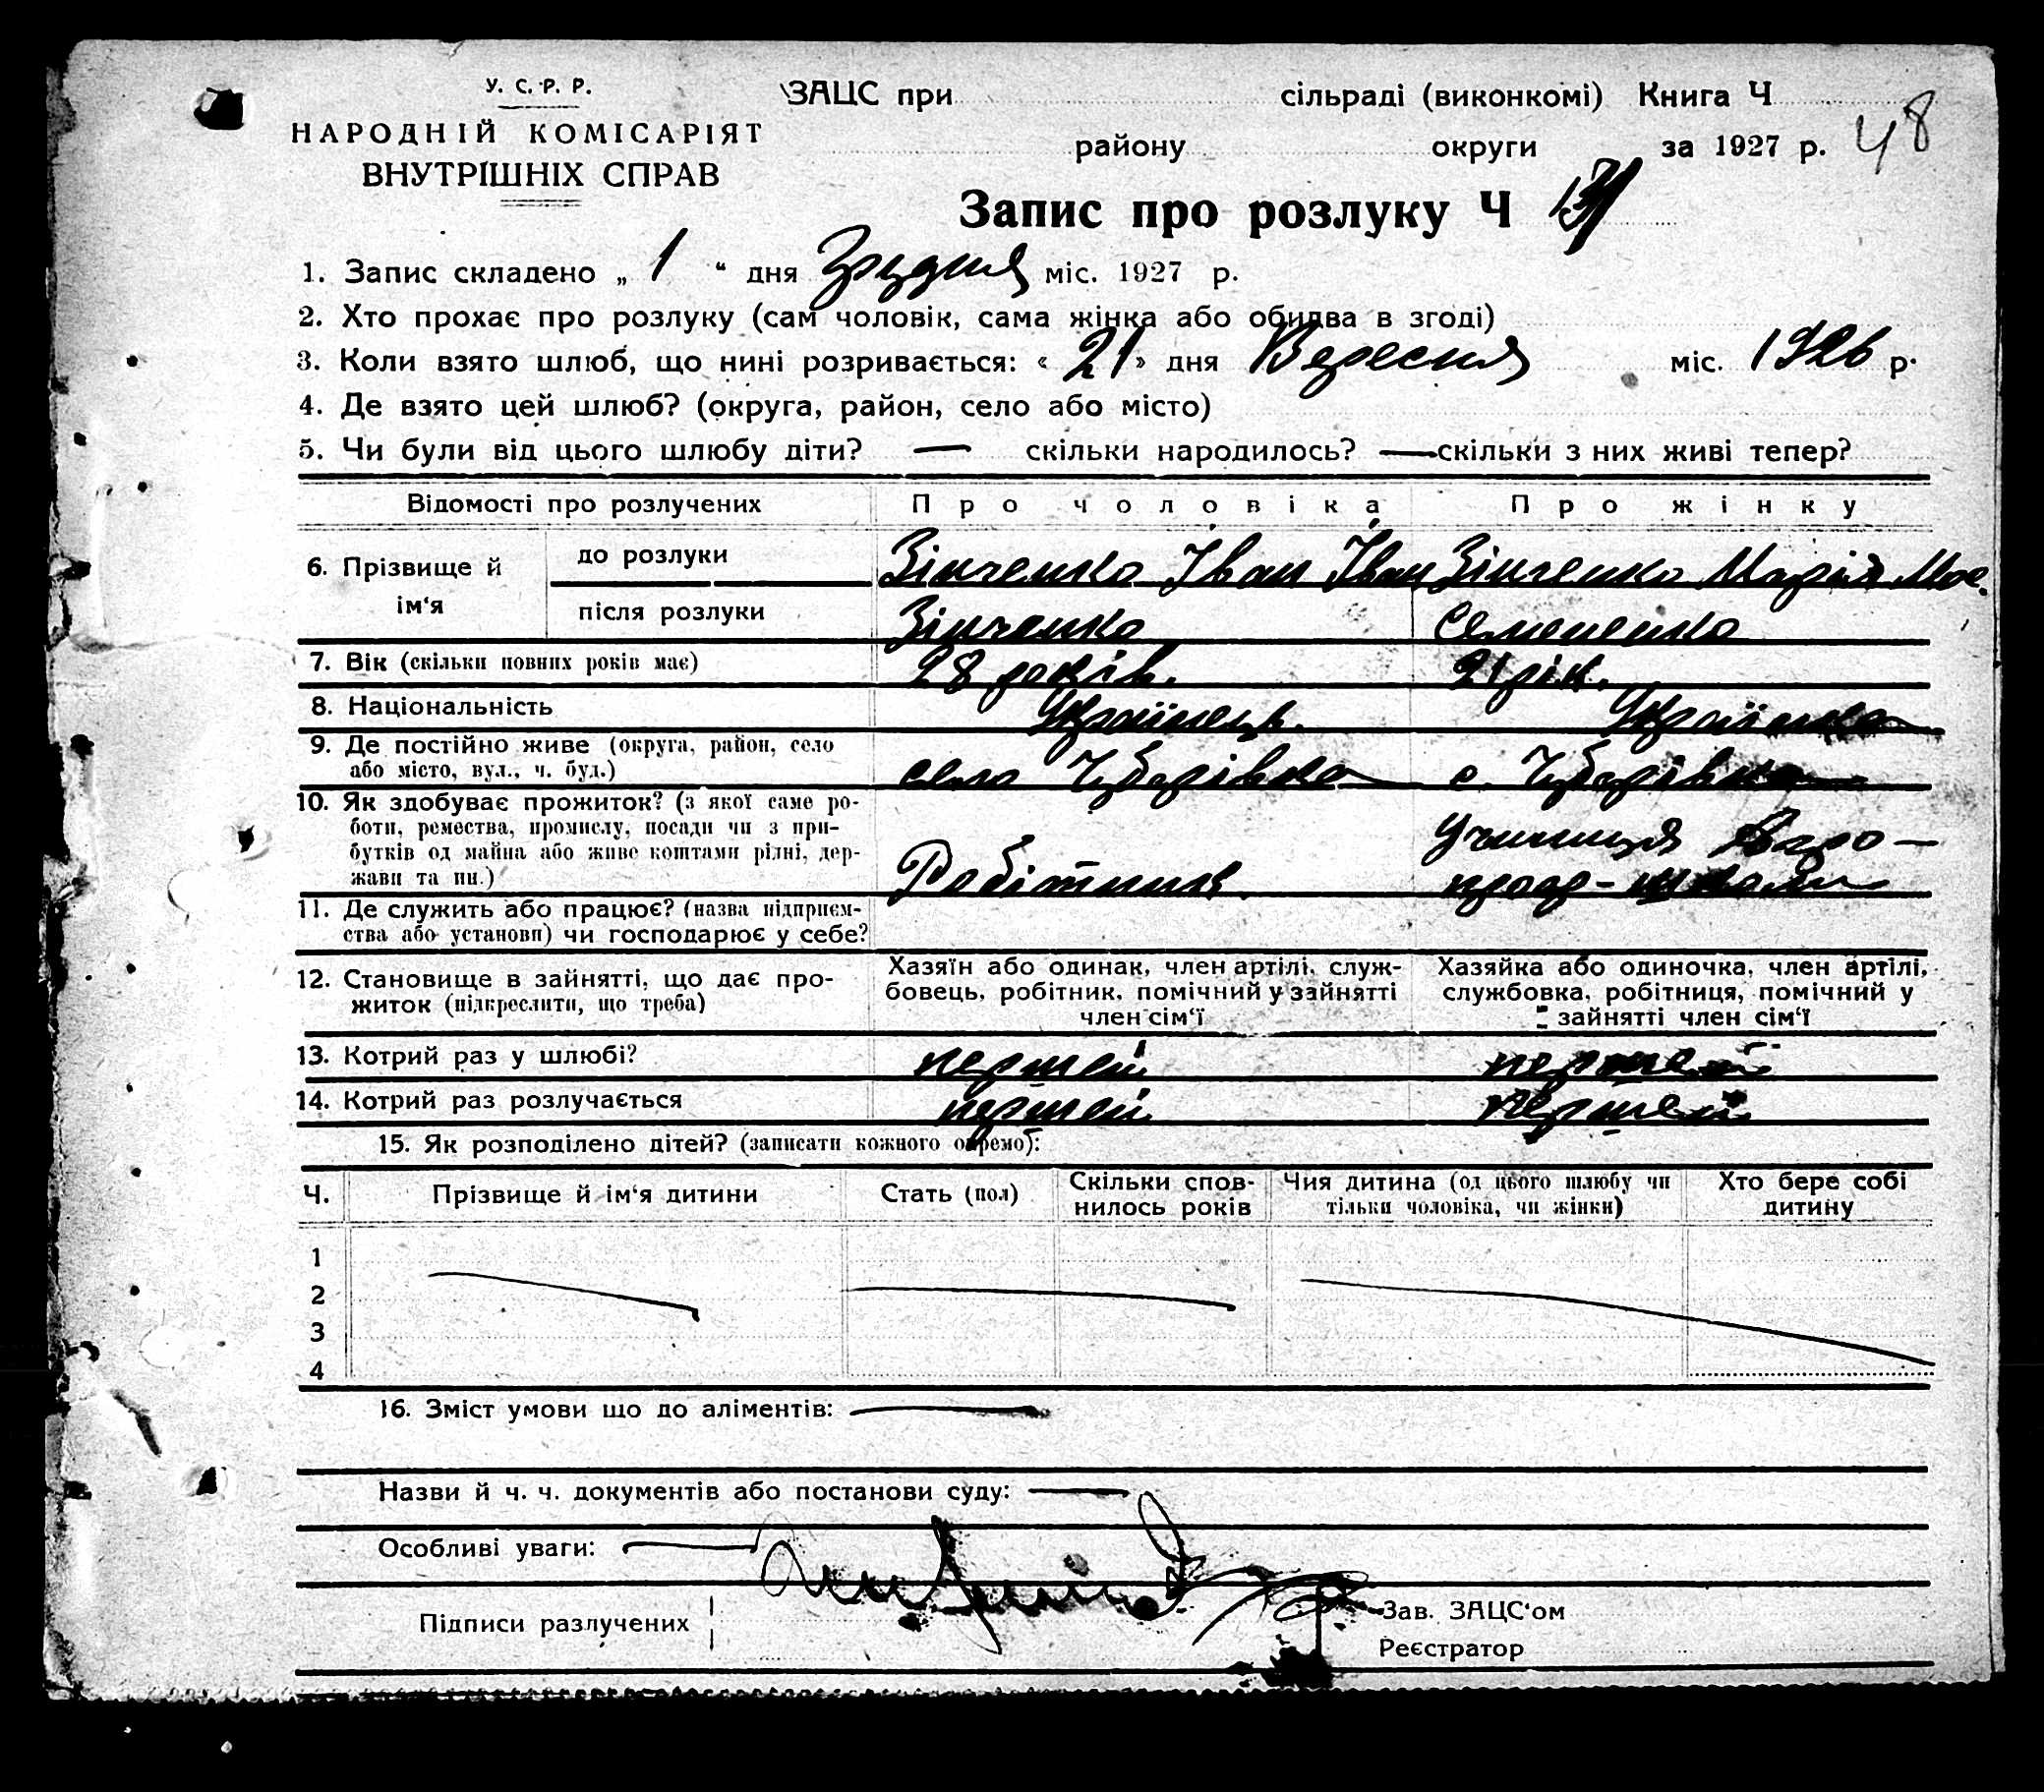 У. С. Р. Р.
НАРОДНІЙ КОМІСАРІЯТ
ВНУТРІШНІХ СПРАВ
ЗАЦС при сільраді (виконкомі) Книга Ч
району округи за 1927 р. 48
Запис про розлуку Ч
1. Запис складено „ 1 “ дня Грудня міс. 1927 р.
2. Хто прохає про розлуку (сам чоловік, сама жінка або обидва в згоді)
3. Коли взято шлюб, що нині розривається: « 21 » дня Вересня міс. 1926 р.
4. Де взято цей шлюб? (округа, район, село або місто)
5. Чи були від цього шлюбу діти? — скільки народилось? — скільки з них живі тепер?
Відомості про розлучених Про чоловіка Про жінку
6. Прізвище й ім‘я до розлуки Зінченко Іван Іван Зінченко Марія Мос.
після розлуки Зінченко Семененко
7. Вік (скільки повних років має) 28 років. 21 рік.
8. Національність Українець. Українка
9. Де постійно живе (округа, район, село
або місто, вул., ч. буд.) село Чубарівка с. Чубарівка
10. Як здобуває прожиток? (з якої саме ро-
боти, ремества, промислу, посади чи з при-
бутків од майна або живе коштами рідні, дер-
жави та ин.) Робітник. Учениця Агро —
проф-школи
11. Де служить або працює? (назва підприєм-
ства або установи) чи господарює у себе?
12. Становище в зайнятті, що дає про-
житок (підкреслити, що треба)
Хазяїн або одинак, член артілі, служ-
бовець, робітник, помічний у зайнятті
член сім‘ї
Хазяйка або одиночка, член артілі,
службовка, робітниця, помічний у
зайнятті член сім‘ї
13. Котрий раз у шлюбі? першей першей
14. Котрий раз розлучається першей першей
15. Як розподілено дітей? (записати кожного окремо):
Ч. Прізвище й ім‘я дитини Стать (пол) Скільки спов-
нилось років Чия дитина (од цього шлюбу чи
тільки чоловіка, чи жінки) Хто бере собі
дитину
1
2
3
4
16. Зміст умови що до аліментів: —
Назви й ч. ч. документів або постанови суду: —
Особливі уваги: —
Підписи разлучених
Зав. ЗАЦС‘ом
Реєстратор